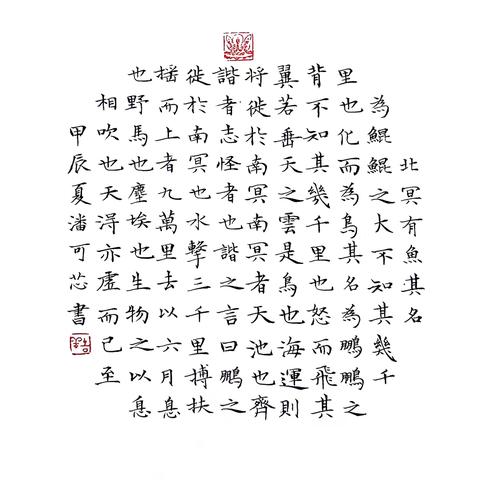 北冥有魚其名
為鯤鯤之大不知其幾千
里也化而為鳥其名為鵬鵬之
背不知其幾千里也怒而飛其
翼若垂天之雲是鳥也海運則
将徙於南冥南冥者天池也齊
諧者志怪者也諧之言曰鵬之
徙於南冥也水擊三千里搏扶
搖而上者九萬里去以六月息
也野馬也塵埃也生物之以息
相吹也天淂亦虛而已至
甲辰夏潘可芯書